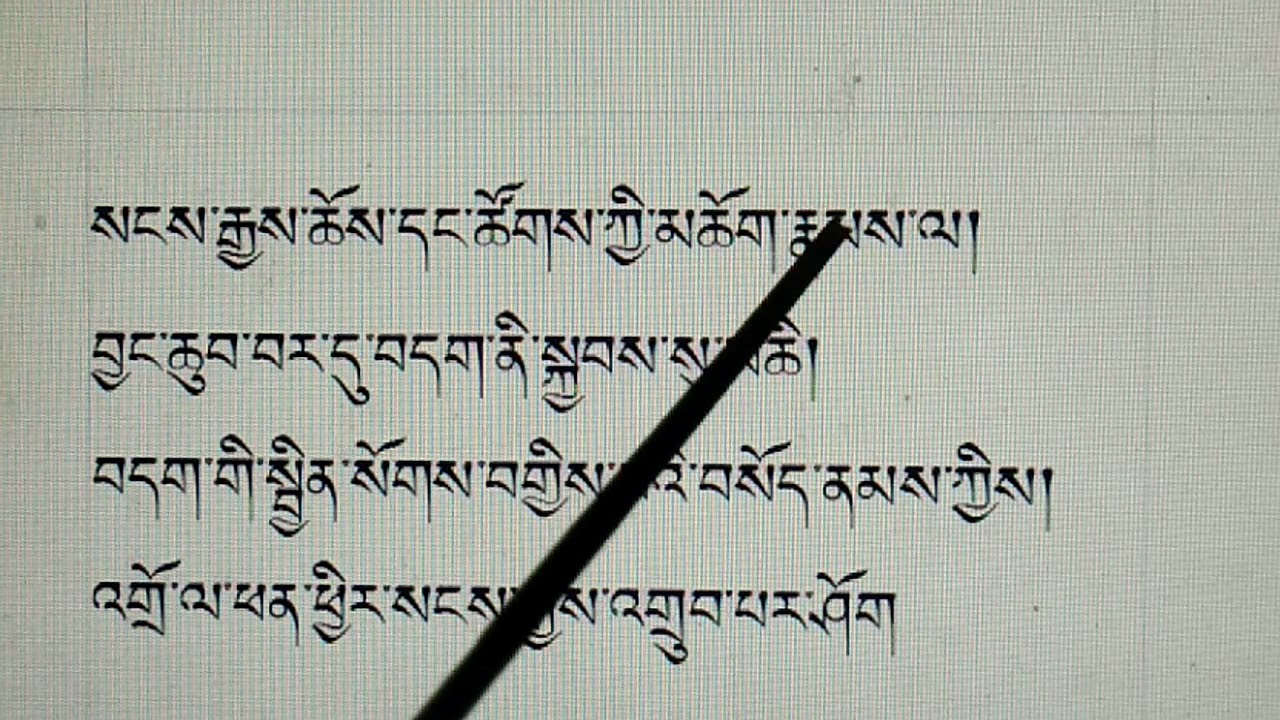 སངས་རྒྱས་ཆོས་དང་ཚོགས་ཀྱི་མཆོག་རྣམས་ལ།
བྱང་ཆུབ་བར་དུ་བདག་ནི་སྐྱབས་སུ་མཆི།
བདག་གི་སྦྱིན་སོགས་བགྱིས་པའི་བསོད་ནམས་ཀྱིས།
འགྲོ་ལ་ཕན་ཕྱིར་སངས་རྒྱས་འགྲུབ་པར་ཤོག